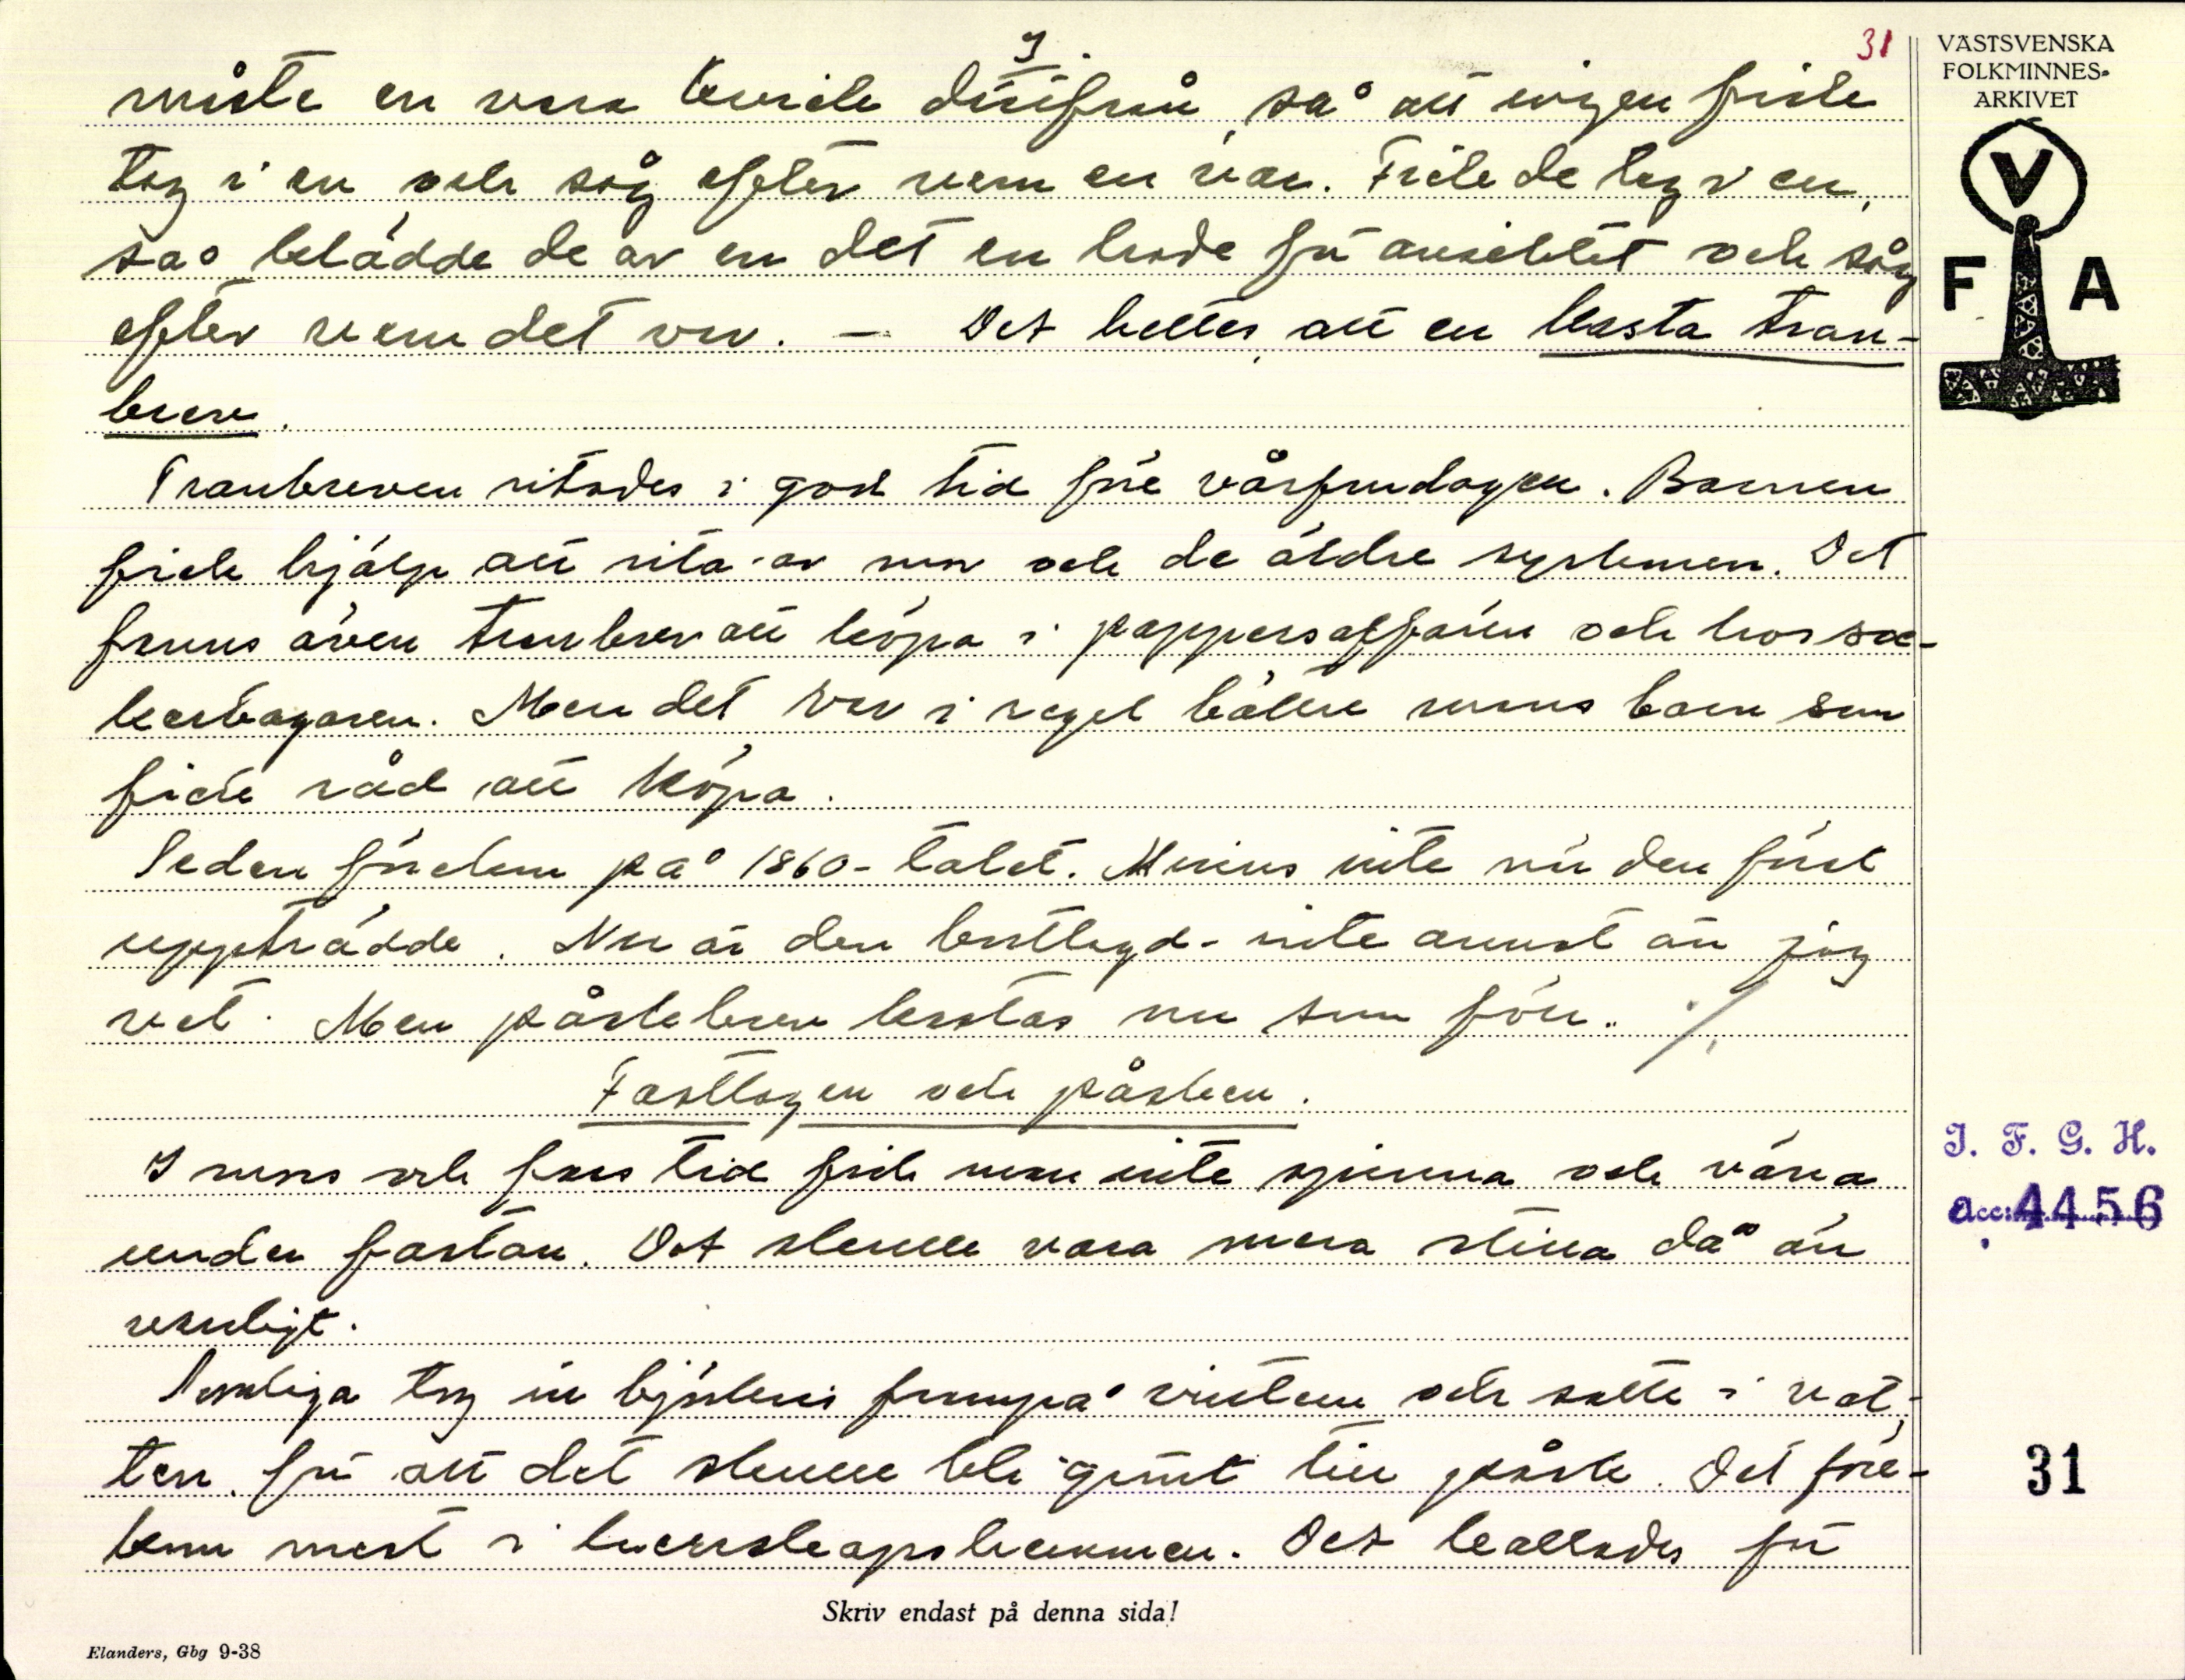 3.
31
måste en vara kvick därifrån, så att ingen fick
tag i en och såg efter vem en var. Fick de tag i en,
så klädde de av en det en hade för ansiktet och såg
efter vem det var. — Det hettes att en kasta tran-
brev.
Tranbreven ritades i god tid före vårfrudagen. Barnen
fick hjälp att rita av mor och de äldre syskonen. Det
fanns även tranbrev att köpa i pappersaffären och hos soc-
kerbagaren. Men det var i regel bättre mans barn som
fick råd att köpa.
Seden förekom på 1860-talet. Minns inte när den först
uppträdde. Nu är den bortlagd - inte annat än jag
vet. Men påskbrev kastas nu som förr. ./.
Fastlagen och påsken.
I mors och fars tid fick man inte spinna och väva
under fastan. Det skulle vara mera stilla då än
vanligt.
Somliga tog in björkris frampå vintern och satte i vat-
ten, för att det skulle bli grönt till påsk. Det före-
kom mest i herrskapshemmen. Det kallades för
Skriv endast på denna sida!
Elanders, Gbg 9-38
VÄSTSVENSKA
FOLKMINNES-
ARKIVET
V
F A
I. F. G. H.
acc: 4456
31